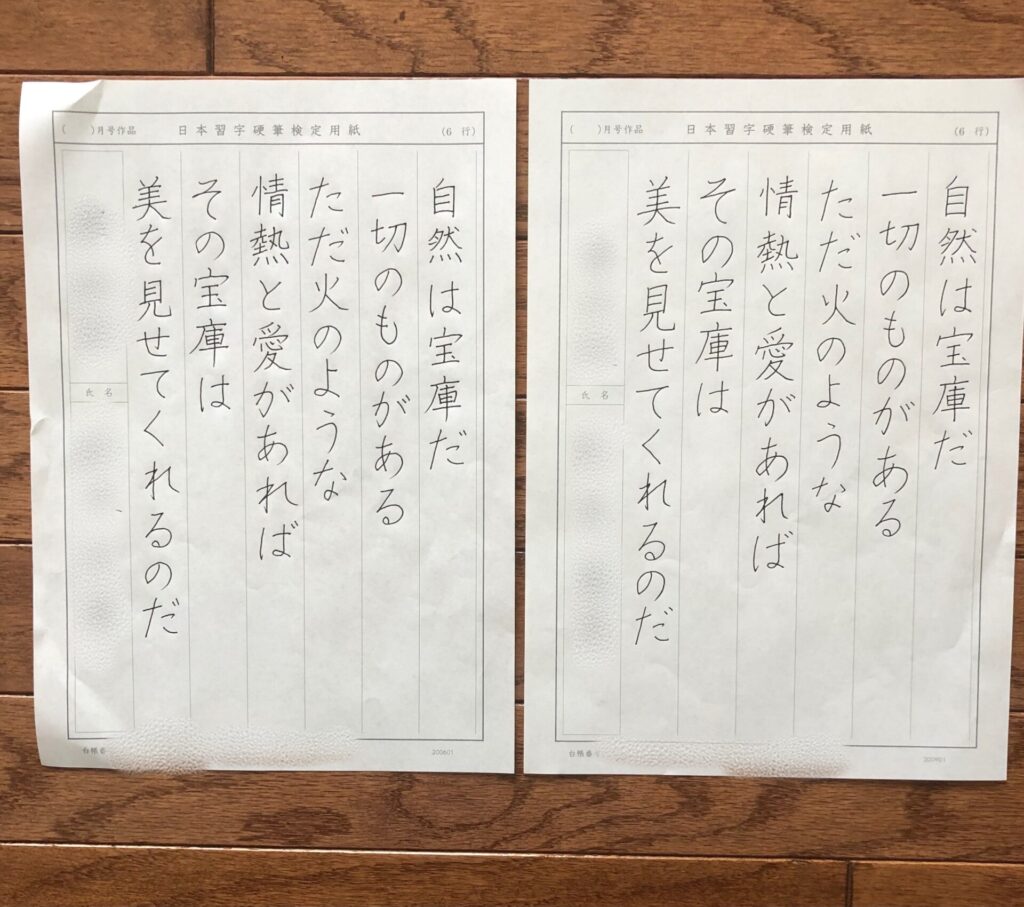 ( )月号作品 日本習字硬筆検定用紙 (6 行)
自然は宝庫だ
一切のものがある
ただ火のような
情熱と愛があれば
その宝庫は
美を見せてくれるのだ
氏名
台帳番
200601
( )月号作品 日本習字硬筆検定用紙 (6 行)
自然は宝庫だ
一切のものがある
ただ火のような
情熱と愛があれば
その宝庫は
美を見せてくれるのだ
氏名
台帳番